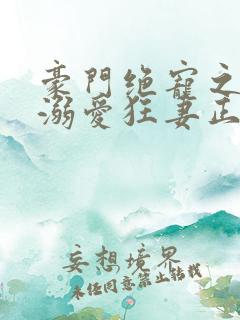 豪門絶寵之
溺愛狂妻正
妄想境界
未任同意禁止转载